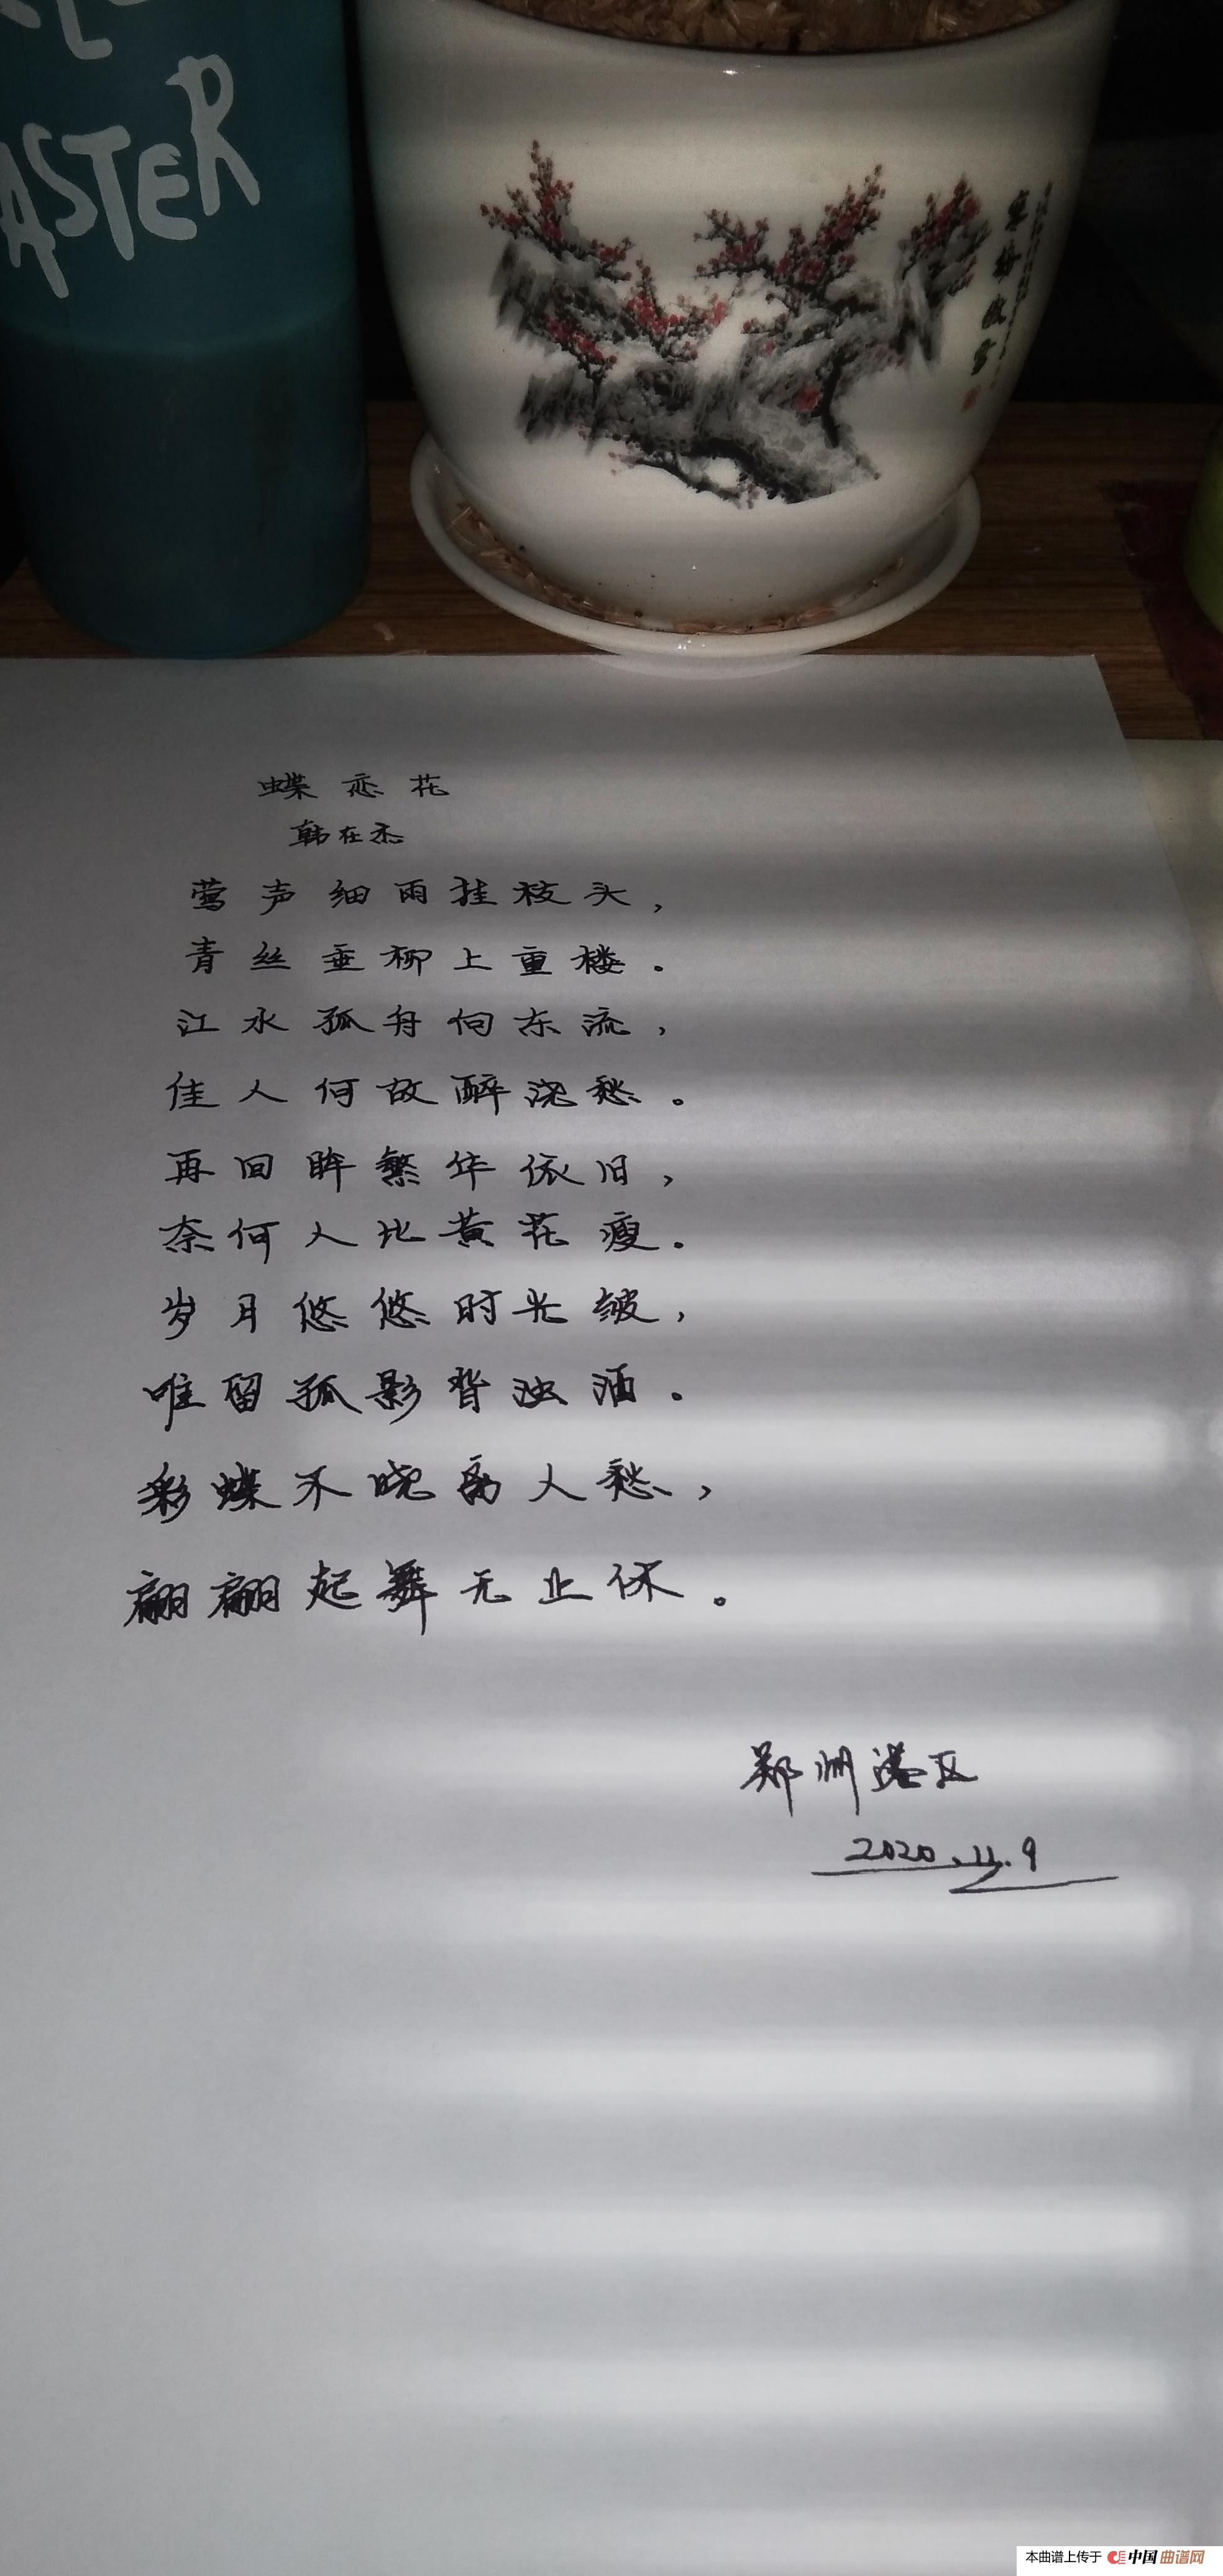 ASTER
蝶恋花
韩在杰
莺声细雨挂枝头，
青丝垂柳上重楼。
江水孤舟向东流，
佳人何故醉浇愁。
再回眸繁华依旧，
奈何人比黄花瘦。
岁月悠悠时光皱，
唯留孤影背浊酒。
彩蝶不晓离人愁，
翩翩起舞无止休。
郑州港区
2020.11.9
本曲谱上传于 中国曲谱网